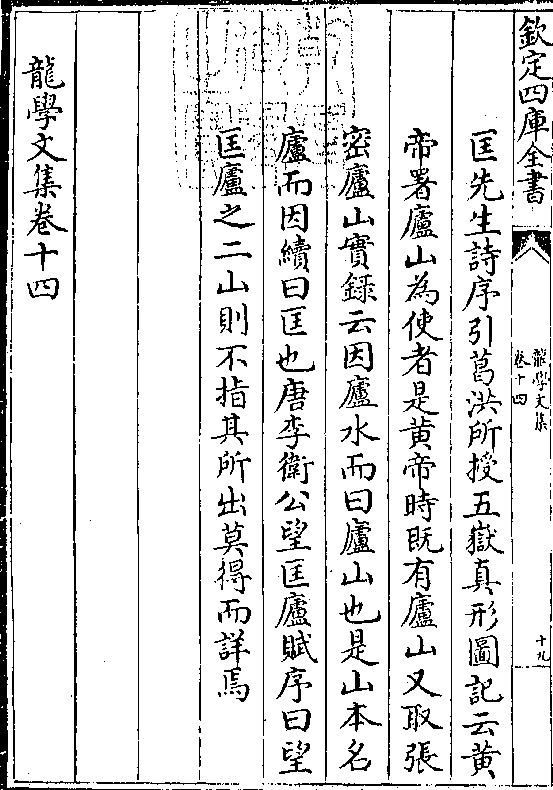 欽定四庫全書
龍學文集
卷十四
十九
匡先生詩序引葛洪所授五嶽真形圖記云黄
帝署廬山為使者是黄帝時既有廬山又取張
密廬山實録云因廬水而曰廬山也是山本名
廬而因續曰匡也唐李衛公望匡廬賦序曰望
匡廬之二山則不指其所出莫得而詳焉
龍學文集卷十四